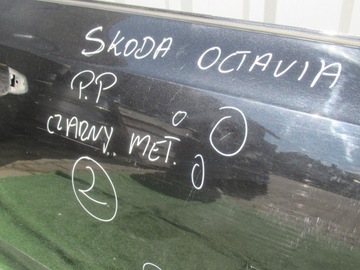 SKODA OCTAVIA
P.P
CZARNY. MET.
2